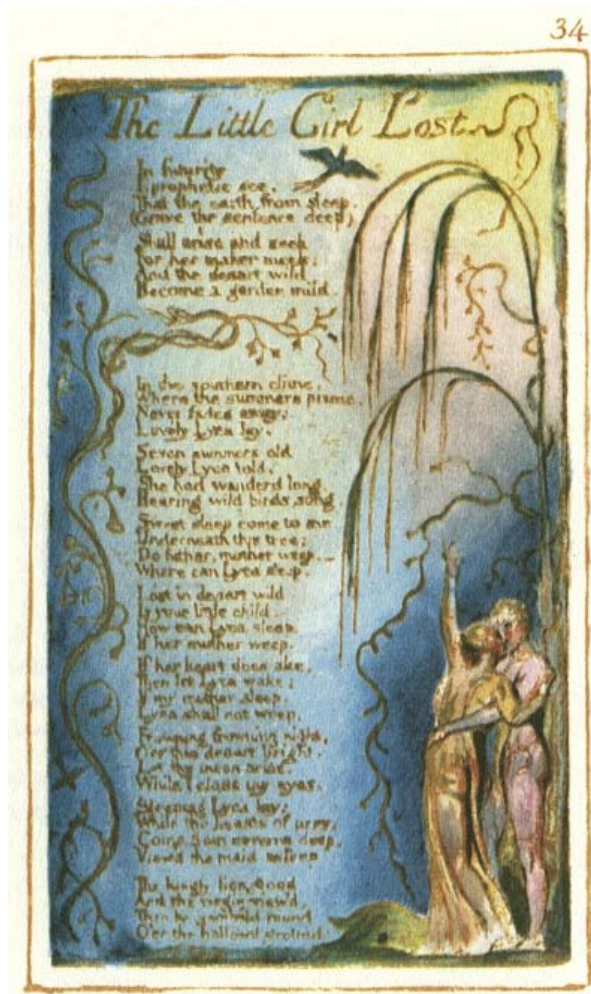 34
The Little Girl Lost
In futurity
I prophetic see,
That the earth from sleep,
(Grave the sentence deep)
Shall arise and seek
For her maker meek:
And the desart wild
Become a garden mild.
In the southern clime,
Where the summers prime,
Never fades away;
Lovely Lyca lay.
Seven summers old
Lovely Lyca told,
She had wanderd long,
Hearing wild birds song.
Sweet sleep come to me
Underneath this tree;
Do father, mother weep.—
Where can Lyca sleep.
Lost in desart wild
Is your little child.
How can Lyca sleep.
If her mother weep.
If her heart does ake,
Then let Lyca wake;
If my mother sleep,
Lyca shall not weep.
Frowning frowning night,
O'er this desart bright.
Let thy moon arise,
While I close my eyes.
Sleeping Lyca lay;
While the beasts of prey,
Come from caverns deep,
View'd the maid asleep
The kingly lion stood
And the virgin view'd,
Then he gambold round
O'er the hallowd ground: